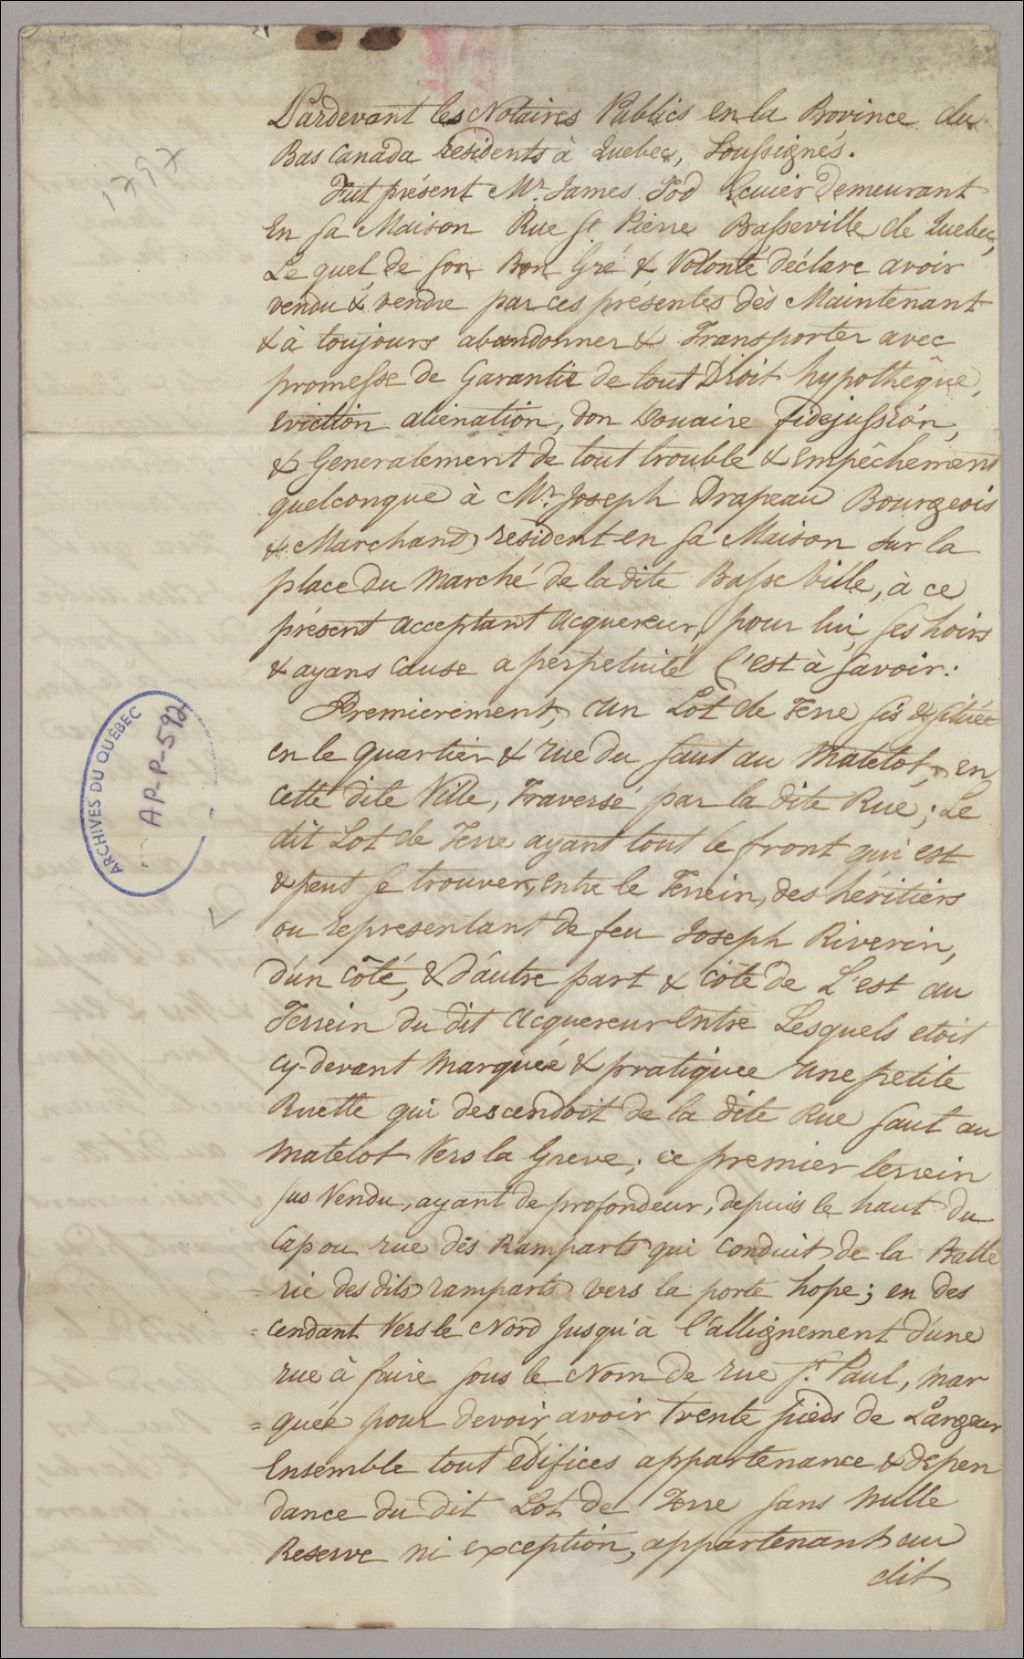 1797
Pardevant les Notaires Publics en la Province du
Bas Canada residents à Quebec, Soussignés.
Fut présent Mr. James Tod Ecuier Demeurant
En sa Maison Rue St Pierre Basseville de Quebec,
Le quel de son Bon Gré & Volonté déclare avoir
vendu & vendre par ces présentes dès Maintenant
& à toujours abandonner & Transporter avec
promesse de Garantie de tout Droit hypothêque,
Eviction alienation, don Douaire fidejussión,
& Generalement de tout trouble & empêchement
quelconque à Mr. Joseph Drapeau Bourgeois
& Marchand resident en sa Maison sur la
place Du Marché de la dite Basse Ville, à ce
présent acceptant Acquereur, pour lui, ses hoirs
& ayans Cause a perpetuité C'est à savoir:
Premierement, Un Lot de Terre sis & situé
en le quartier & rue du Saut au Matelot, en
cette dite Ville, Traversé par la dite Rue; Le
dit Lot de Terre ayant tout le front qui est
& peut se trouver, entre le Terrein, des héritiers
ou representant de feu Joseph Riverin,
d'un côté, & d'autre part & côté de L'est au
Terrein du dit Acquereur Entre Lesquels etoit
cy-devant Marquée & pratiquée une petite
Ruette qui descendoit de la dite Rue Saut au
Matelot Vers la Greve; ce premier terrein
sus Vendu, ayant de profondeur, depuis le haut du
Cap ou rue des Ramparts qui conduit de la Batte
=rie des dits ramparts vers la porte hope; en des
=cendant Vers le Nord Jusqu'à l'allignement d'une
rue à faire sous le Nom de rue St. Paul, mar
=quée pour devoir avoir Trente pieds de Largeur
Ensemble tout édifices appartenance & depen
dance du dit Lot de Terre sans nulle
Reserve ni exception, appartenant au
dit
ARCHIVES DU QUÉBEC
AP-P-592